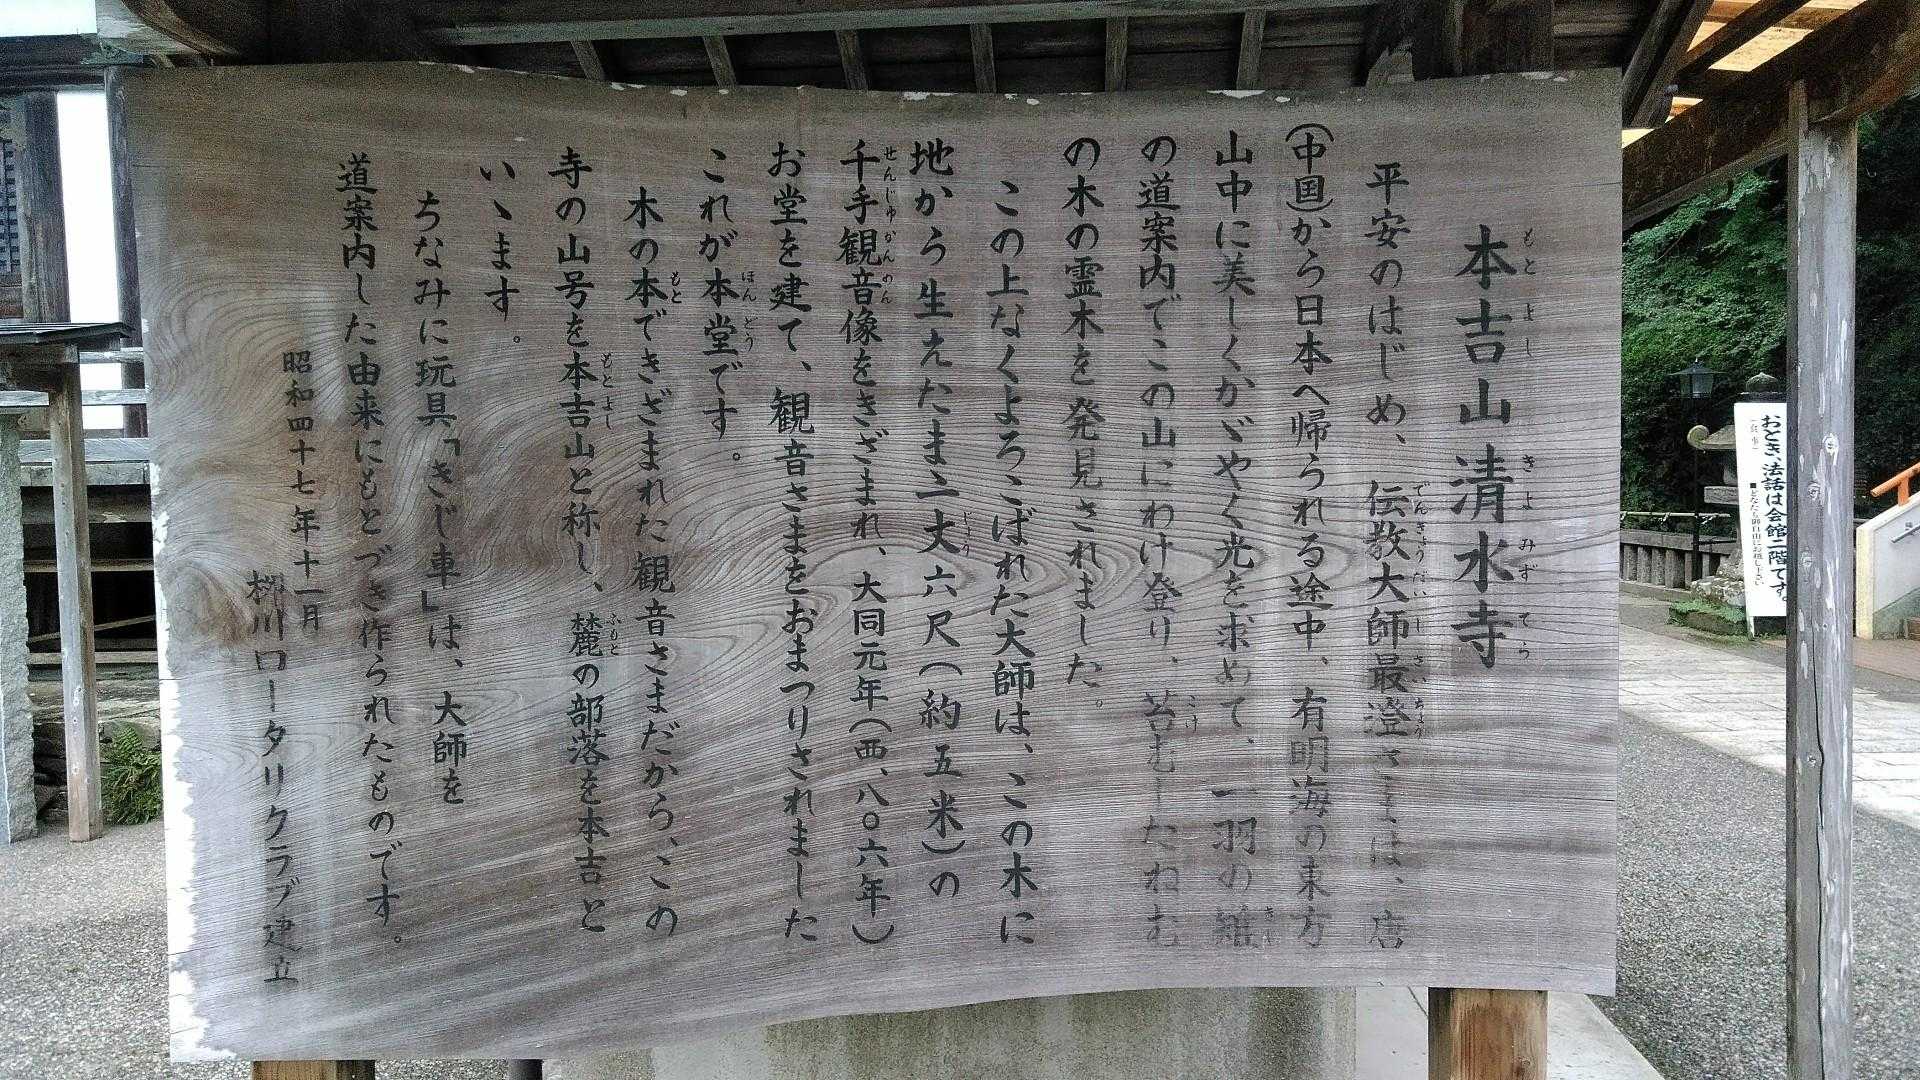 本吉山清水寺
平安のはじめ、伝教大師最澄さまは、唐
(中国)から日本へ帰られる途中、有明海の東方
山中に美しくかゞやく光を求めて、一羽の雉
の道案内でこの山にわけ登り、苔むしたねむ
の木の霊木を発見されました。
この上なくよろこばれた大師は、この木に
地から生えたまゝ一丈六尺(約五米)の
千手観音像をきざまれ、大同元年(西、八〇六年)
お堂を建て、観音さまをおまつりされました
これが本堂です。
木の本できざまれた観音さまだから、この
寺の山号を本吉山と称し、麓の部落を本吉と
いゝます。
ちなみに玩具「きじ車」は、大師を
道案内した由来にもとづき作られたものです。
昭和四十七年十一月
柳川ロータリクラブ建立
おとき、法話は会館二階です。